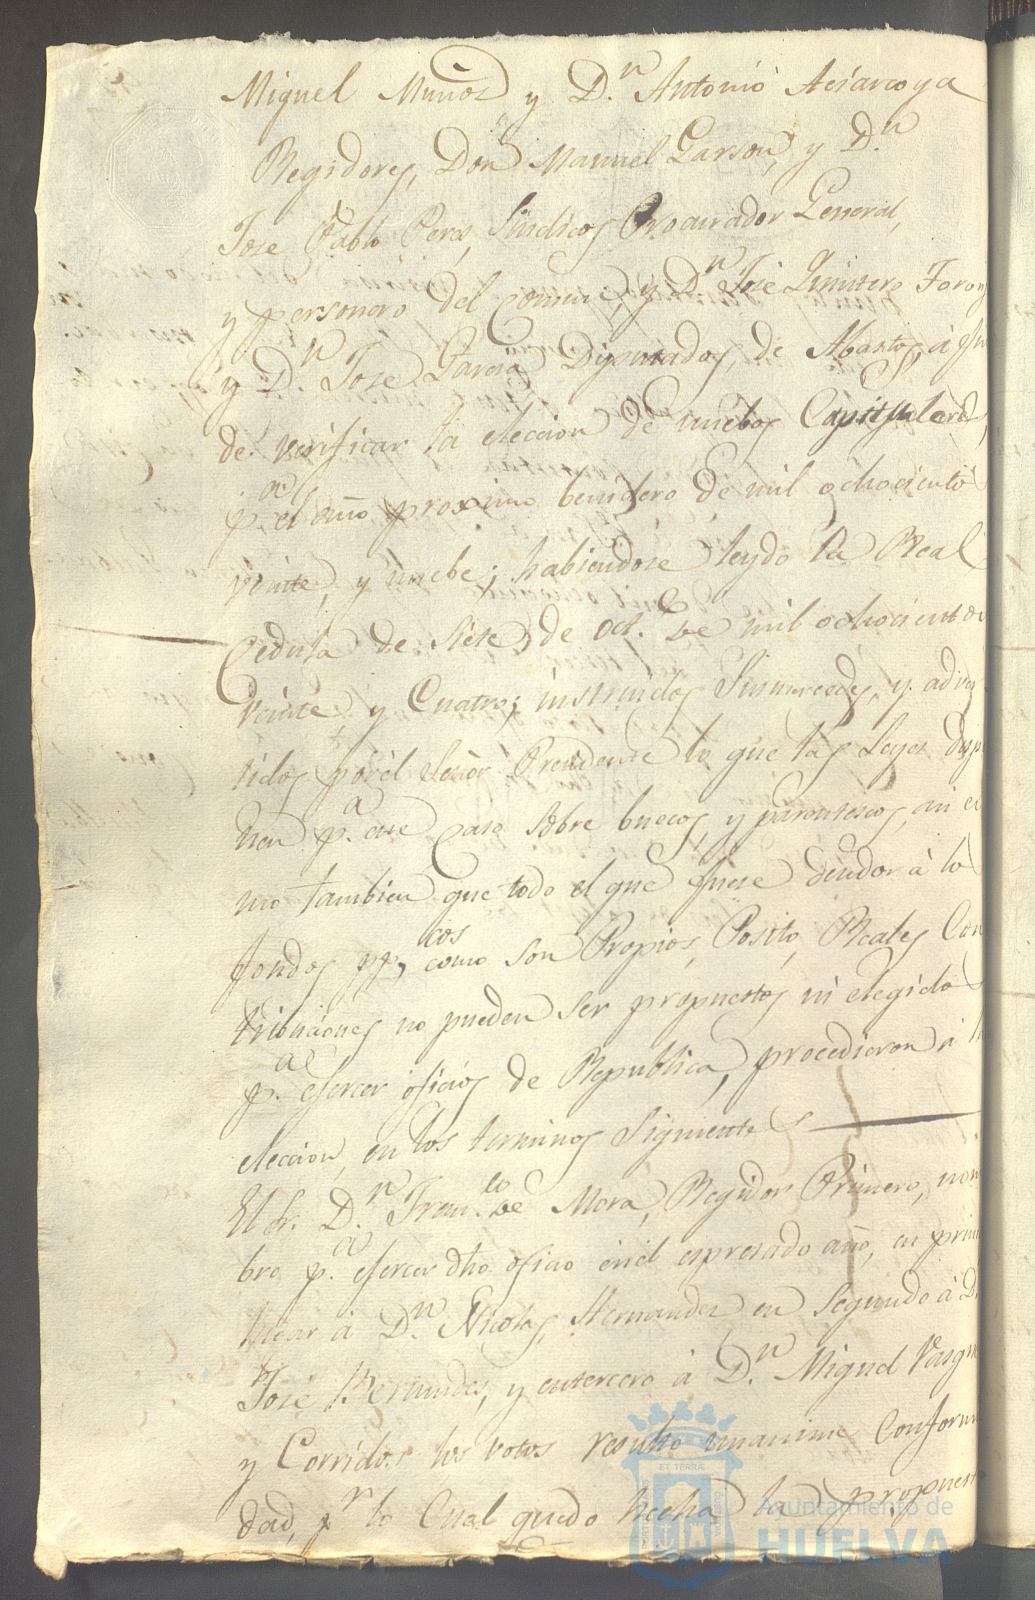 Miguel Muñoz y D.n Antonio Asiarcoya
Regidores, Don Manuel Garzon, y D.n
Jose Pablo Perez, Sindicos Procurador General,
y personero del Comun, y D.n José Quintero Toron
y D.n Jose Garcia Diputados, de Abastos, á
de verificar la eleccion de nuebos Capitulares,
p.a el año proximo benidero de mil ochociento
veinte, y nuebe; habiendose leydo la Real
Cedula de siete, de Oct.e de mil ochociento
veinte y Cuatro; instruidos Sus mercedes, y adver
tidos por el Señor Precidente lo que las Leyes dispo
nen p.a este Caso sobre huecos, y parentescos, asi co
mo tambien que todo el que fuese deudor á lo
fondos pp.cos como son Propios, Posito, Reales Con
triuciones no pueden ser propuestos ni elegido
p.a eserser oficios de Republica, procedieron á
eleccion, en los terminos Siguientes
El Sr. D.n Fran.co de Mora, Regidor Primero, nom
bro p.a eserser dho oficio en el espresado año, en prim
lugar á D.n Nicolas Hernandez en segundo á D.
José Fernandez, y en tercero á D.n Miguel
y Corridos los votos resulto unanime Conformi
dad, p.r lo Cual quedo hecha la propuest
Ayuntamiento de
HUELVA